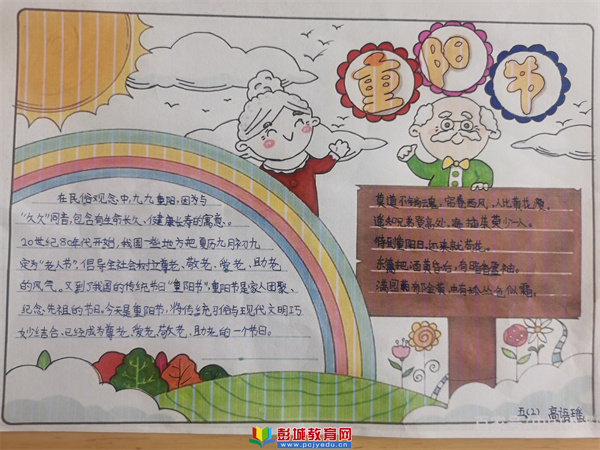 重阳节
在民俗观念中,九九重阳,因为与
“久久”同音,包含有生命长久、健康长寿的寓意。
20世纪80年代开始,我国一些地方把夏历九月初九
定为“老人节”,倡导全社会树立尊老、敬老、爱老、助老
的风气。又到了我国的传统节日“重阳节”,重阳节是家人团聚、
纪念先祖的节日。今天是重阳节,将传统习俗与现代文明巧
妙结合,已经成为尊老、爱老、敬老,助老的一个节日。
莫道不销魂,帘卷西风,人比黄花瘦。
遥知兄弟登高处,遍插茱萸少一人。
待到重阳日,还来就菊花。
东篱把酒黄昏后,有暗香盈袖。
满园
五(2) 高语瑶
彭城教育网
www.pcjyedu.cn